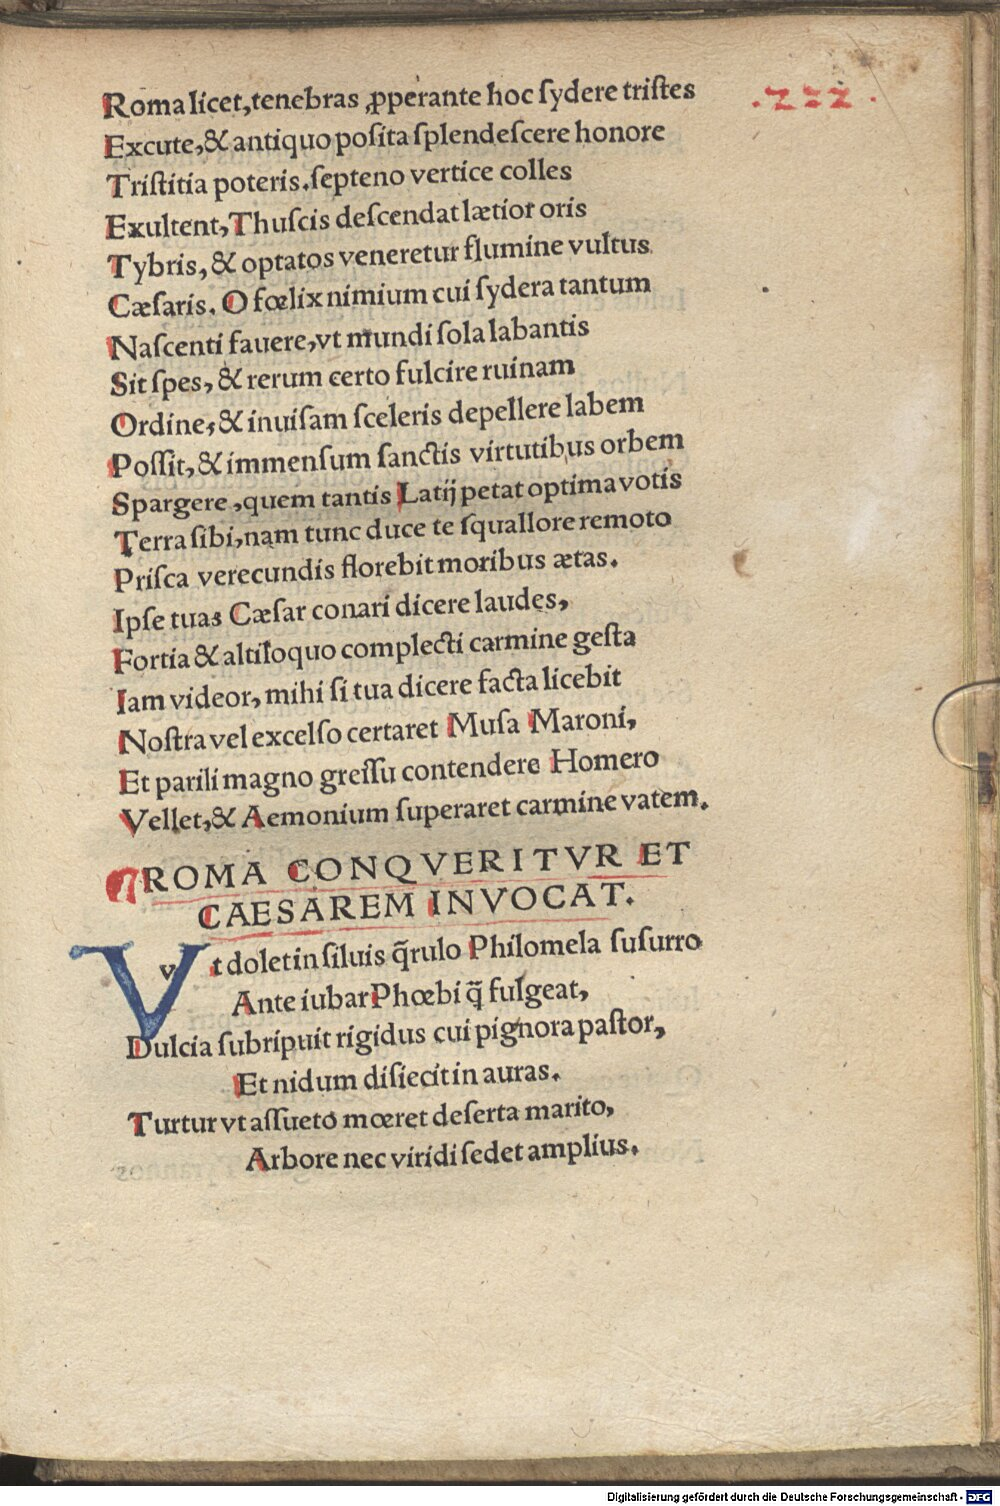 .222.
Roma licet,tenebras ꝓperante hoc ſydere triſtes
Excute,& antiquo poſita ſplendeſcere honore
Triſtitia poteris.ſepteno vertice colles
Exultent,Thuſcis deſcendat lætior oris
Tybris, & optatos veneretur flumine vultus
Cæſaris. O fœlix nimium cui ſydera tantum
Naſcenti fauere,vt mundi ſola labantis
Sit ſpes, & rerum certo fulcire ruinam
Ordine,& inuiſam ſceleris depellere labem
Poſſit,& immenſum ſanctis virtutibus orbem
Spargere,quem tantis Latij petat optima votis
Terra ſibi,nam tunc duce te ſquallore remoto
Priſca verecundis florebit moribus ætas.
Ipſe tuas Cæſar conari dicere laudes,
Fortia & altiloquo complecti carmine geſta
Iam videor, mihi ſi tua dicere facta licebit
Noſtra vel excelſo certaret Muſa Maroni,
Et parili magno greſſu contendere Homero
Vellet,& Aemonium ſuperaret carmine vatem.
ROMA CONQVERITVR ET
CAESAREM INVOCAT.
Vt dolet in ſiluis q̃rulo Philomela ſuſurro
Ante iubar Phœbi q̃ fulgeat,
Dulcia ſubripuit rigidus cui pignora paſtor,
Et nidum diſiecit in auras.
Turtur vt aſſueto mœret deſerta marito,
Arbore nec viridi ſedet amplius.
Digitalisierung gefördert durch die Deutsche Forschungsgemeinschaft - DFG